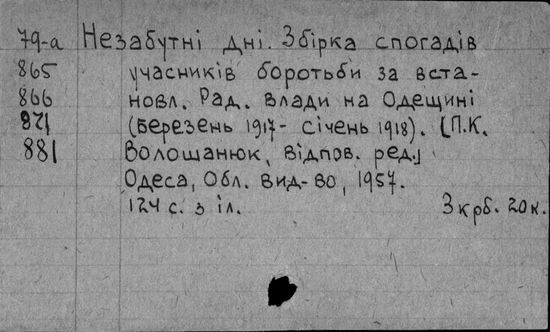 79-а Незабутні дні. Збірка спогадів
865 учасників боротьби за вста-
866 новл. Рад. влади на Одещині
871 (березень 1917- січень 1918). [П.К.
881 Волощанюк, відпов. ред.]
Одеса, Обл. вид-во, 1957.
124 с. з іл. 3 крб. 20 к.